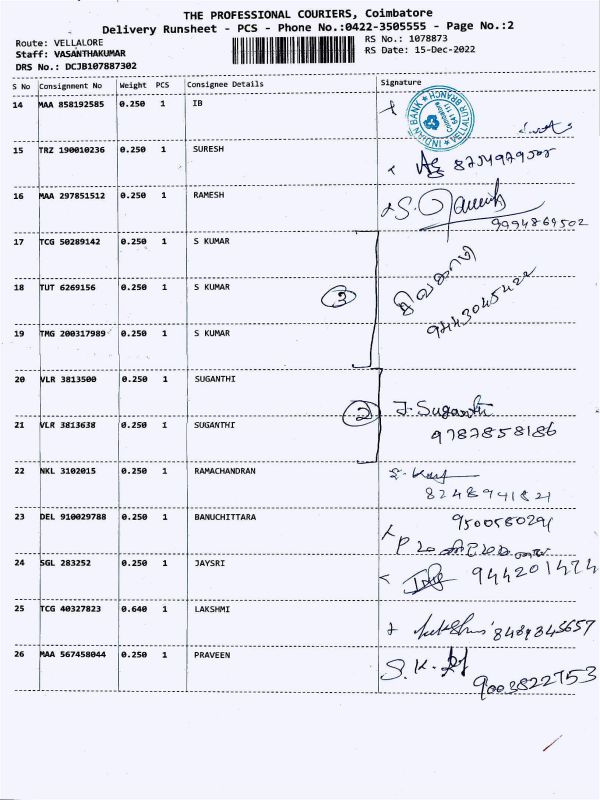 THE PROFESSIONAL COURIERS, Coimbatore
Delivery Runsheet - PCS - Phone No.:0422-3505555 - Page No.:2
Route: VELLALORE
RS No.: 1078873
Staff: VASANTHAKUMAR
RS Date: 15-Dec-2022
DRS No.: DCJB107887302
S No Consignment No Weight PCS Consignee Details Signature
14 MAA 858192585 0.250 1 IB
INDIAN BANK ★ VELLALUR BRANCH ★
15 TRZ 190010236 0.250 1 SURESH
16 MAA 297851512 0.250 1 RAMESH
9994869502
17 TCG 50289142 0.250 1 S KUMAR
18 TUT 6269156 0.250 1 S KUMAR 3
9443045422
19 TMG 200317989 0.250 1 S KUMAR
20 VLR 3813500 0.250 1 SUGANTHI
2 J. Suganthi
21 VLR 3813638 0.250 1 SUGANTHI
9787858186
22 NKL 3102015 0.250 1 RAMACHANDRAN
8248941821
23 DEL 910029788 0.250 1 BANUCHITTARA
9500580291
24 SGL 283252 0.250 1 JAYSRI
944201474
25 TCG 40327823 0.640 1 LAKSHMI
8489345657
26 MAA 567458044 0.250 1 PRAVEEN
S.K.
9003822753